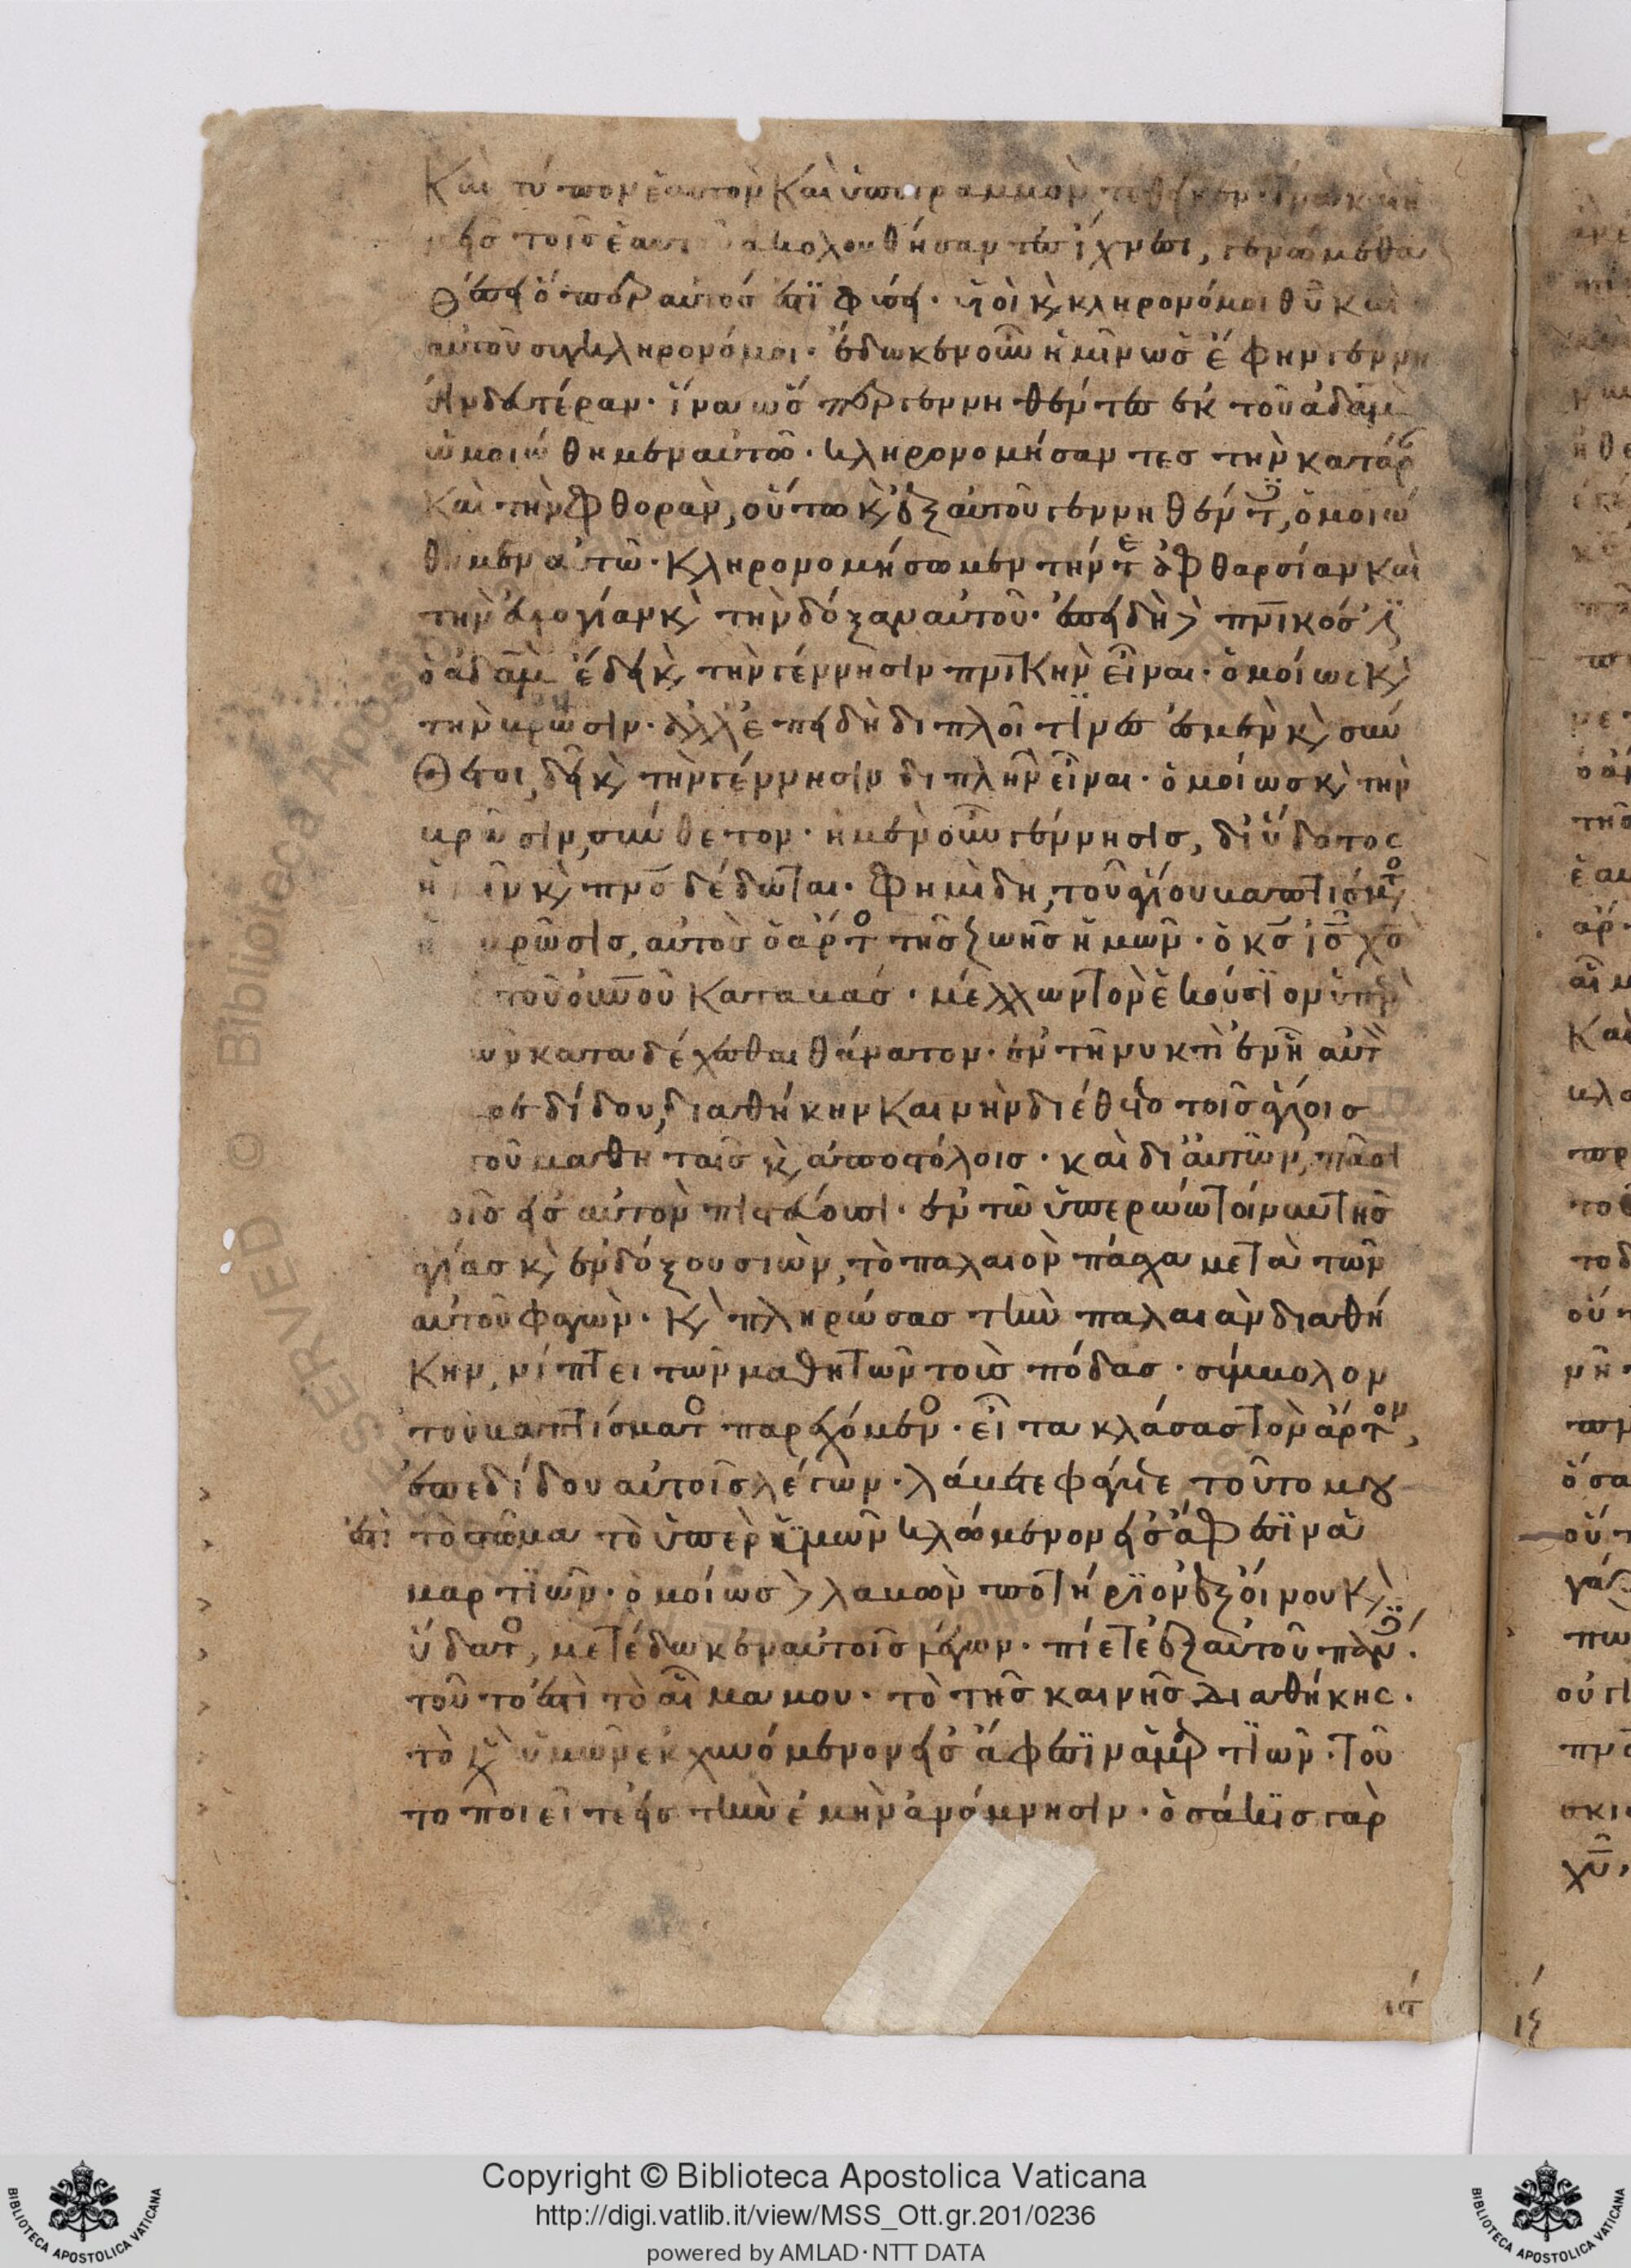 Καὶ τύπον ἑαυτὸν καὶ ὑπογραμμὸν τέθηκεν· ἵνα καὶ ἡ
μεῖς τοῖς ἑαυτοῦ ἀκολουθήσαντες ἴχνεσι, γενώμεθα
θέσει ὅπερ αὐτός ἐστι φύσει· υἱοὶ κ κληρονόμοι θῦ καὶ
αὐτοῦ συγκληρονόμοι· ἔδωκεν οὖν ἡμῖν ὡς ἔφην γέννη
σιν δευτέραν· ἵνα ὡσπερ γεννηθέντες ἐκ τοῦ ἀδὰμ
ὡμοιώθημεν αὐτῶ· κληρονομήσαντες τὴν κατάρ
καὶ τὴν φθοράν, οὕτω κ ἐξ αὐτοῦ γεννηθέντ, ὁμοιω
θῶμεν αὐτῶ· κληρονομήσωμεν τήν τε ἀφθαρσίαν καὶ
τὴν εὐλογίαν κ τὴν δόξαν αὐτοῦ· ἐπειδὴ πνικός
ὁ ἀδὰμ ἔδει κ τὴν γέννησιν πνικὴν εἶναι· ὁμοίως κ
τὴν βρῶσιν· ἀλλ' ἐπειδὴ διπλοῖ τινές ἐσμεν κ σύν
θετοι, δεῖ κ τὴν γέννησιν διπλῆν εἶναι· ὁμοίως κ τὴν
βρῶσιν, σύνθετον· ἡ μὲν οὖν γέννησις, δι' ὕδατος
ἡμῖν κ πνς δέδωται· φημὶ δὴ, τοῦ ἁγίου βαπτίσματο
ἡ βρῶσις, αὐτὸς ὁ ἄρτο τῆς ζωῆς ἡμῶν· ὁ κς ις χς
τοῦ οὐνοῦ καταβάς· μέλλων τὸν ἑκούσιον ὑπὲρ
ἡμῶν καταδέχεσθαι θάνατον· ἐν τῆ νυκτὶ ἐν ἧ αὐτ
παρεδίδου, διαθήκην καινὴν διέθετο τοῖς ἁγίοις
αὐτοῦ μαθηταῖς κ ἀποστόλοις· καὶ δι' αὐτῶν, πᾶσι
τοῖς εἰς αὐτὸν πιστεύουσι· ἐν τῶ ὑπερώω τοίνυν τῆς
ἁγίας κ ἐνδόξου σιὼν, τὸ παλαιὸν πάσχα μετὰ τῶν
αὐτοῦ φαγὼν· κ πληρώσας τὴν παλαιὰν διαθή
κην, νίπτει τῶν μαθητῶν τοὺς πόδας· σύμβολον
τοῦ βαπτίσματο παρεχόμενο· εἶτα κλάσας τὸν ἄρτον,
ἐπεδίδου αὐτοῖς λέγων· λάβετε φάγετε, τοῦτο μου
ἐστὶ τὸ σῶμα τὸ ὑπὲρ ὑμῶν κλώμενον εἰς ἄφεσιν ἁ
μαρτιῶν· ὁμοίως λαβὼν ποτήριον ἐξ οἴνου κ
ὕδατο, μετέδωκεν αὐτοῖς λέγων· πίετε ἐξ αὐτοῦ πάν·
τοῦτό ἐστι τὸ αἷμα μου· τὸ τῆς καινῆς διαθήκης·
τὸ ὑπὲρ ὑμῶν ἐκχυνόμενον εἰς ἄφεσιν ἁμαρτιῶν· τοῦ
το ποιεῖτε εἰς τὴν ἐμὴν ἀνάμνησιν· ὁσάκις γὰρ
Copyright © Biblioteca Apostolica Vaticana
http://digi.vatlib.it/view/MSS_Ott.gr.201/0236
powered by AMLAD·NTT DATA
BIBLIOTECA APOSTOLICA VATICANA
BIBLIOTECA APOSTOLICA VATICANA